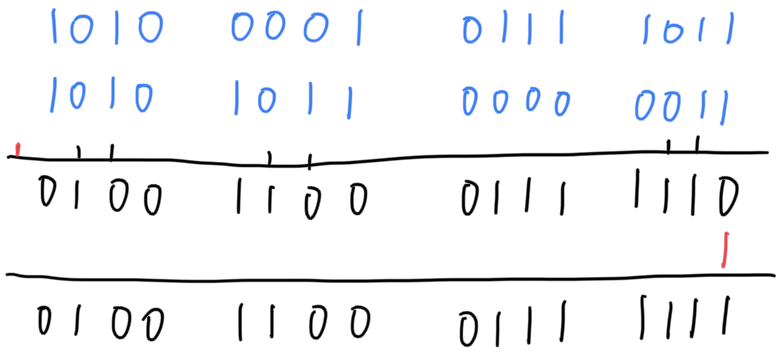 1010 0001 0111 1011
1010 1011 0000 0011
0100 1100 0111 1110
1
0100 1100 0111 1111